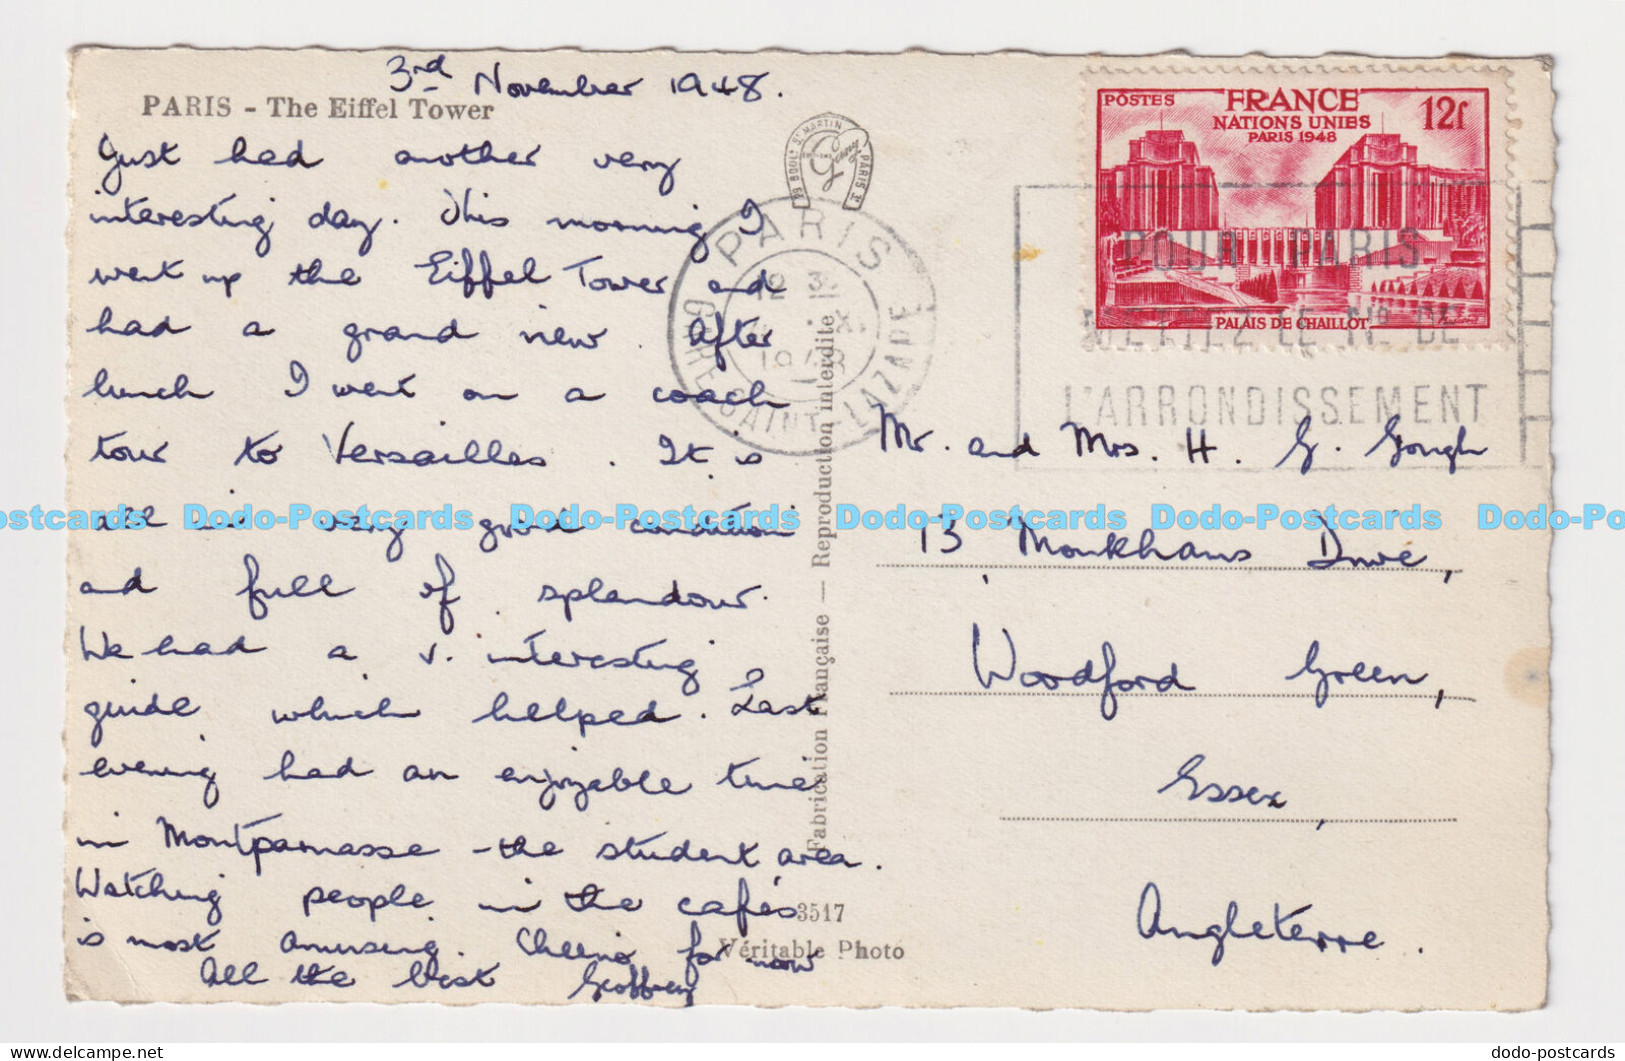 3rd November 1948.
PARIS - The Eiffel Tower
Just had another very
interesting day. This morning I
went up the Eiffel Tower and
had a grand view. After
lunch I went on a coach
tour to Versailles. It is
all in very good condition
and full of splendour.
We had a v. interesting
guide which helped. Last
evening had an enjoyable time
in Montparnasse - the student area.
Watching people in the cafés
is most amusing. Cheerio for now
All the best Geoffrey
29 BOULD ST MARTIN PARIS
PARIS
12 3
XI
1948
GARE SAINT-LAZARE
Fabrication Française — Reproduction interdite
3517
Véritable Photo
POSTES FRANCE 12f
NATIONS UNIES
PARIS 1948
PALAIS DE CHAILLOT
POUR PARIS
METTEZ LE No DE
L'ARRONDISSEMENT
Mr. and Mrs. H. G. Gough
13 Monkhams Drive,
Woodford Green,
Essex,
Angleterre.
ostcards Dodo-Postcards Dodo-Postcards Dodo-Postcards Dodo-Postcards Dodo-Po
dodo-postcards